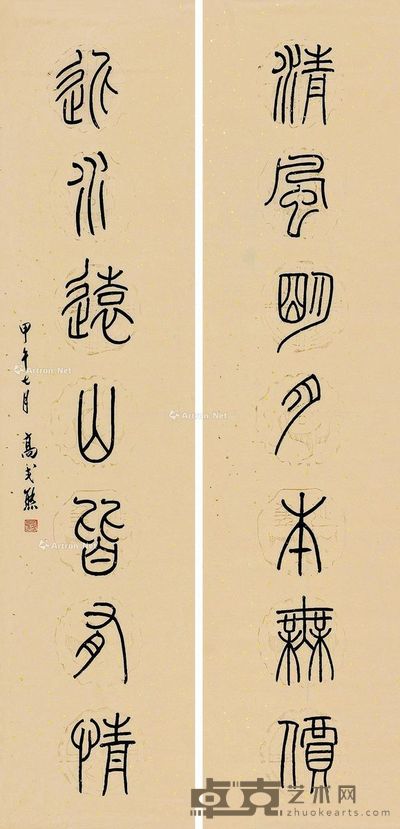 清風明月本無價
近水遠山皆有情
甲午七月 高式熊
Artron.Net
Artron.Net
Artron.Net
Artron.Net
卓克艺术网
zhuokearts.com